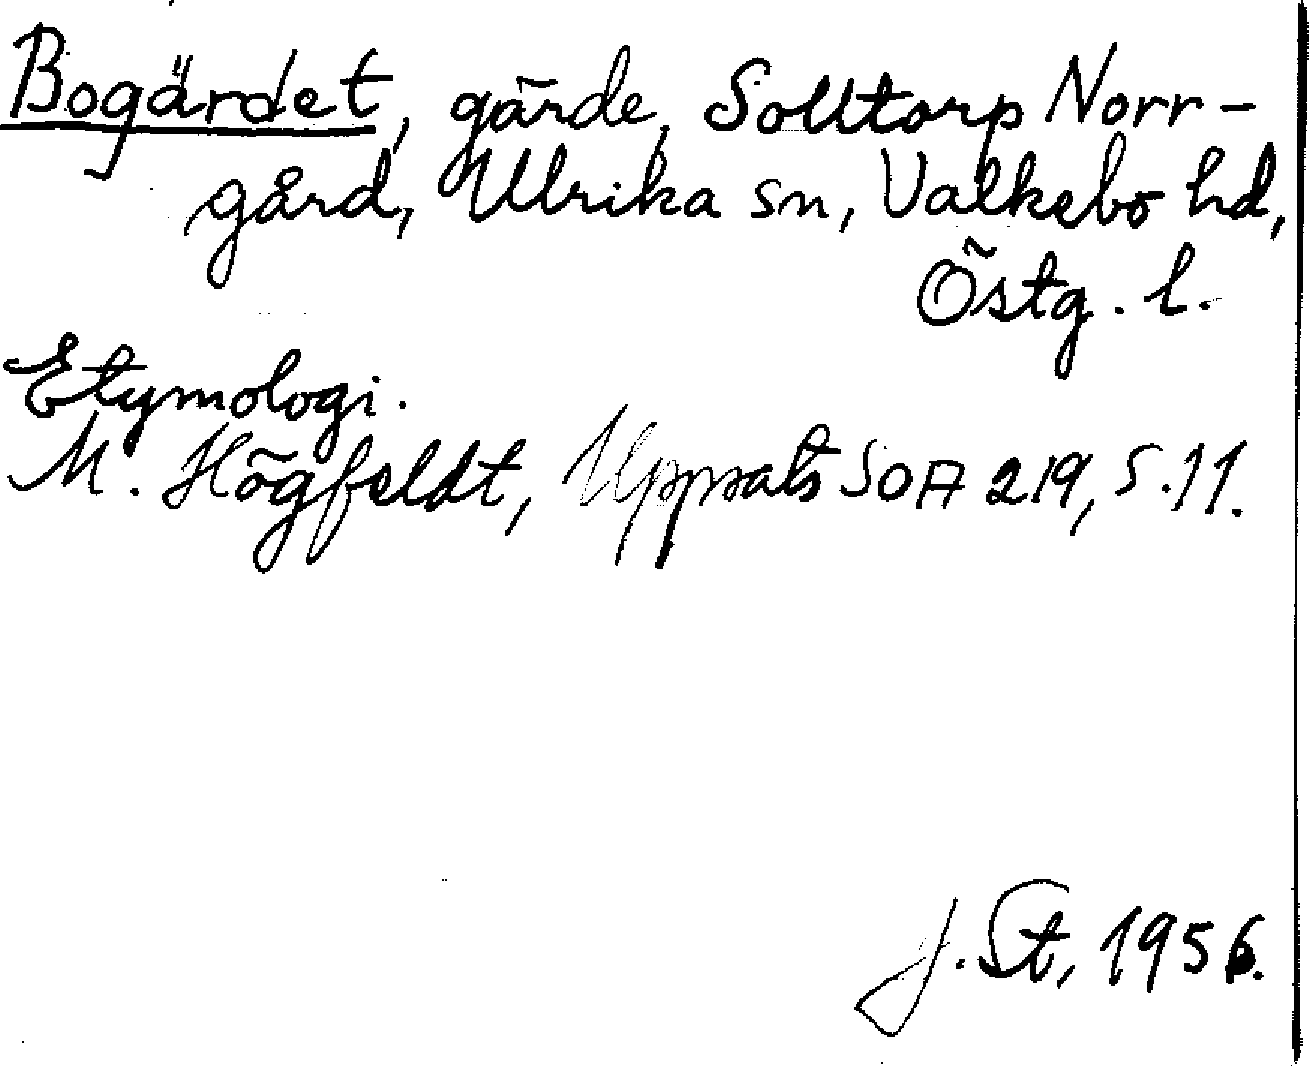 Bogärdet, gärde, Solltorp Norr-
gård, Ulrika sn, Valkebo hd,
Östg. l.
Etymologi.
M. Högfeldt, Uppsats SOA 219, S. 11.
J. St, 1956.